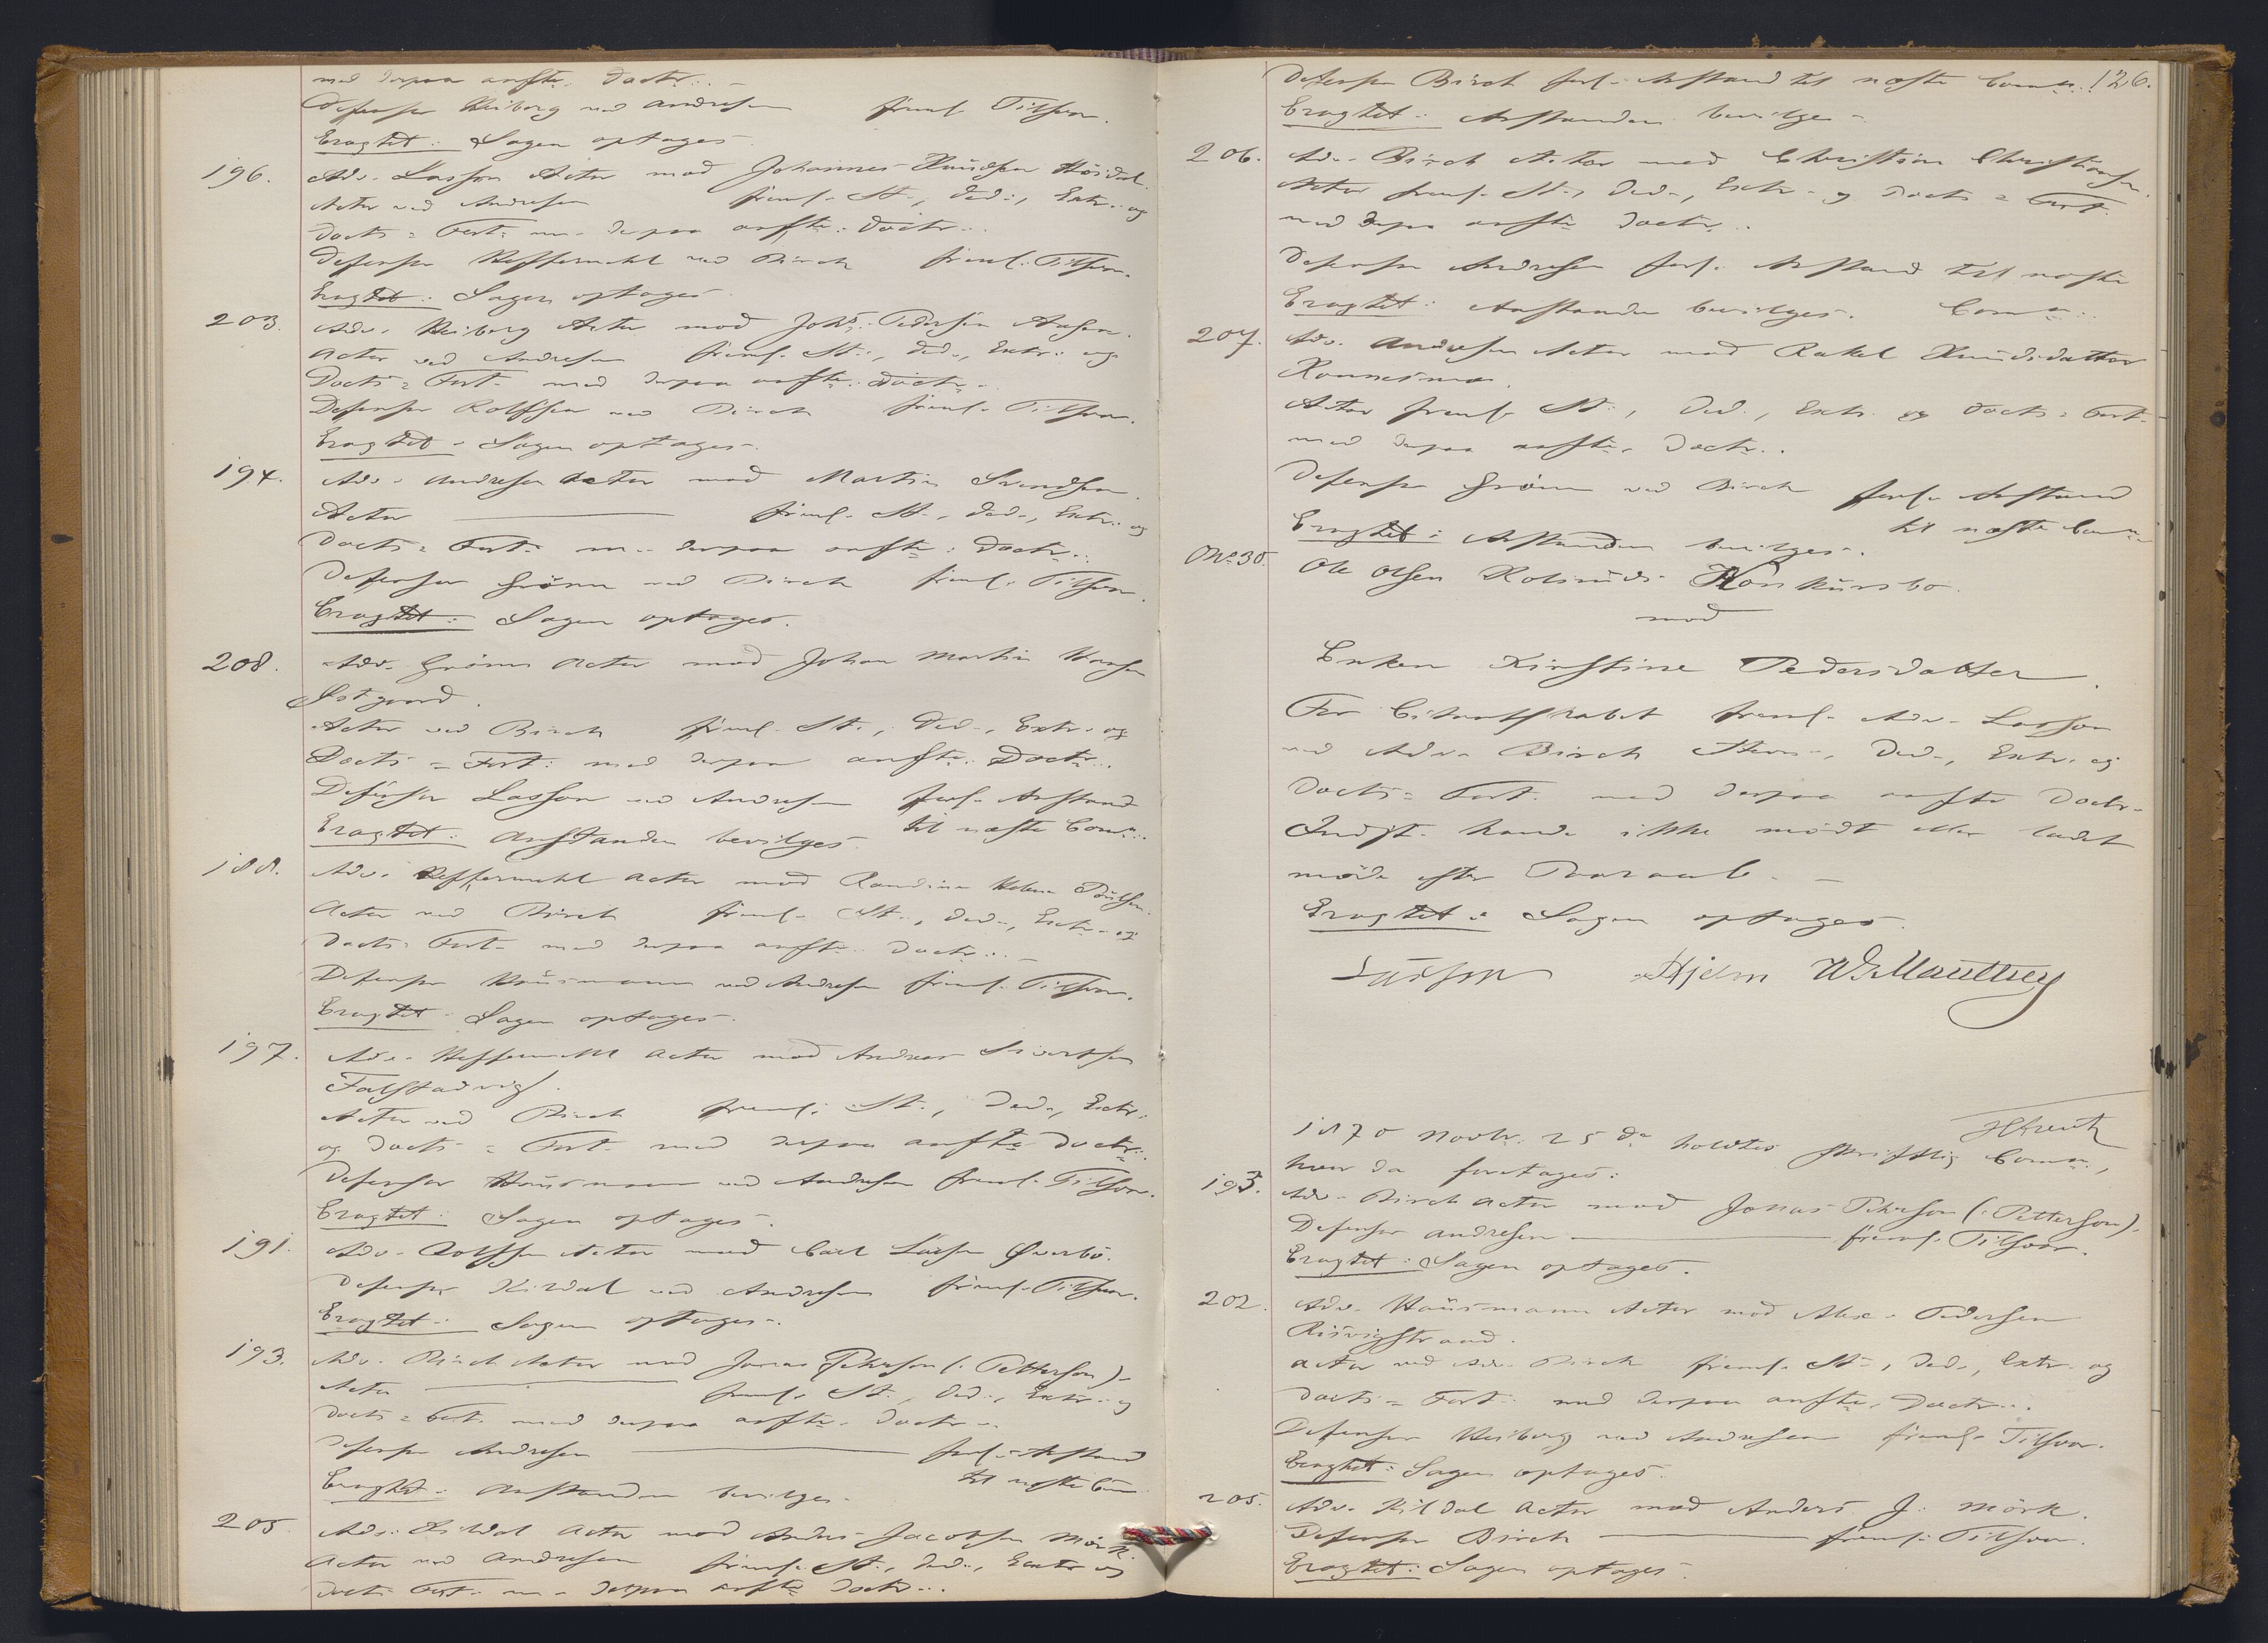 med derpaa anfte. Doctr..
Defensor Heiberg ved Andresen freml. Tilsvar.
Eragtet: Sagen optages
196. Adv. Lasson Actor mod Johannes Knudsen Höidal.
Actor ved Andresen freml. St., Ded., Extr. og
Docts = Fort. m. derpaa anfte. Doctr..
Defensor Heffermehl ved Birch freml. Tilsvar.
Eragtet: Sagen optages
203. Adv. Heiberg Actor mod Johs. Pedersen Aasen.
Actor ved Andresen freml. St., Ded., Extr. og
Docts = Fort. med derpaa anfte. Doctr.
Defensor Rolfsen ved Birch freml. Tilsvar.
Eragtet: Sagen optages.
194. Adv. Andresen Actor mod Martin Svendsen.
Actor freml. St., Ded., Extr. og
Docts = Fort. m. derpaa anfte. Doctr..
Defensor Grönn ved Birch freml. Tilsvar.
Eragtet: Sagen optages.
208. Adv. Grönn Actor mod Johan Martin Hansen
Östgaard.
Actor ved Birch freml. St., Ded., Extr. og
Docts = Fort. med derpaa anfte. Doctr...
Defensor Lasson ved Andresen forl. Anstand
Eragtet: Anstanden bevilges. til næste Comn..
188. Adv. Heffermehl Actor mod Randine Helene
Actor ved Birch freml. St., Ded., Extr. og
Docts = Fort. med derpaa anfte. Doctr...
Defensor Hausmann ved Andresen freml. Tilsvar.
Eragtet: Sagen optages.
197. Adv. Heffermehl Actor mod Andreas Sivertsen
Falstadvig.
Actor ved Birch freml. St., Ded., Extr.
og Docts = Fort. med derpaa anfte Doctr..
Defensor Hausmann ved Andresen freml. Tilsvar.
Eragtet: Sagen optages.
191. Adv. Rolfsen Actor mod Carl Larsen
Defensor Kildal ved Andresen freml. Tilsvar.
Eragtet: Sagen optages.
193. Adv. Birch Actor mod Jonas Pehrson (: Petterson).
Actor freml. St., Ded., Extr. og
Docts = Fort. med derpaa anfte. Doctr..
Defensor Andresen forl. Anstand
Eragtet: Anstanden bevilges. til næste Com
205. Adv. Kildal Actor mod Anders Jacobsen Mörk.
Actor ved Andresen freml. St., Ded., Extr og
Docts Fort. m. derpaa anfte Doctr...
126.
Defensor Birch forl. Anstand til næste Comn..
Eragtet: Anstanden bevilges.
206. Adv. Birch Actor mod Christian Christiansen.
Actor freml. St., Ded., Extr. og Docts = Fort.
med derpaa anfte Doctr..
Defensor Andresen forl. Anstand til næste
Eragtet: Anstanden bevilges. Comn..
207. Adv. Andresen Actor mod Rakel Knudsdatter
Actor freml. St., Ded., Extr. og Docts = Fort.
med derpaa anfte. Doctr..
Defensor Grönn ved Birch forl. Anstand
Eragtet: Anstanden bevilges. til næste Comn
No. 30. Ole Olsen Konkursbo.
mod
Enken Kirstine Pedersdatter.
For Citantskabet freml. Adv. Lasson
ved Adv. Birch Stevn., Ded., Extr. og
Docts = Fort. med derpaa anfte Doctr.
Indst. havde ikke mödt eller ladet
möde efter Paaraab.
Eragtet: Sagen optages.
Larsson Hjelm Manthey
1870 Novbr. 25de holdtes skriftlig Comn.,
hvor da foretages:
193. Adv. Birch Actor mod Jonas Pehrson (: Petterson).
Defensor Andresen freml. Tilsvar.
Eragtet: Sagen optages.
202. Adv. Hausmann Actor mod Alex. Pedersen
Risvigstrand.
Actor ved Adv. Birch freml. St., Ded., Extr. og
Docts = Fort. med derpaa anfte. Doctr...
Defensor Heiberg ved Andresen freml. Tilsvar.
Eragtet: Sagen optages.
205. Adv. Kildal Actor mod Anders J. Mörk.
Defensor Birch freml. Tilsvar.
Eragtet: Sagen optages.